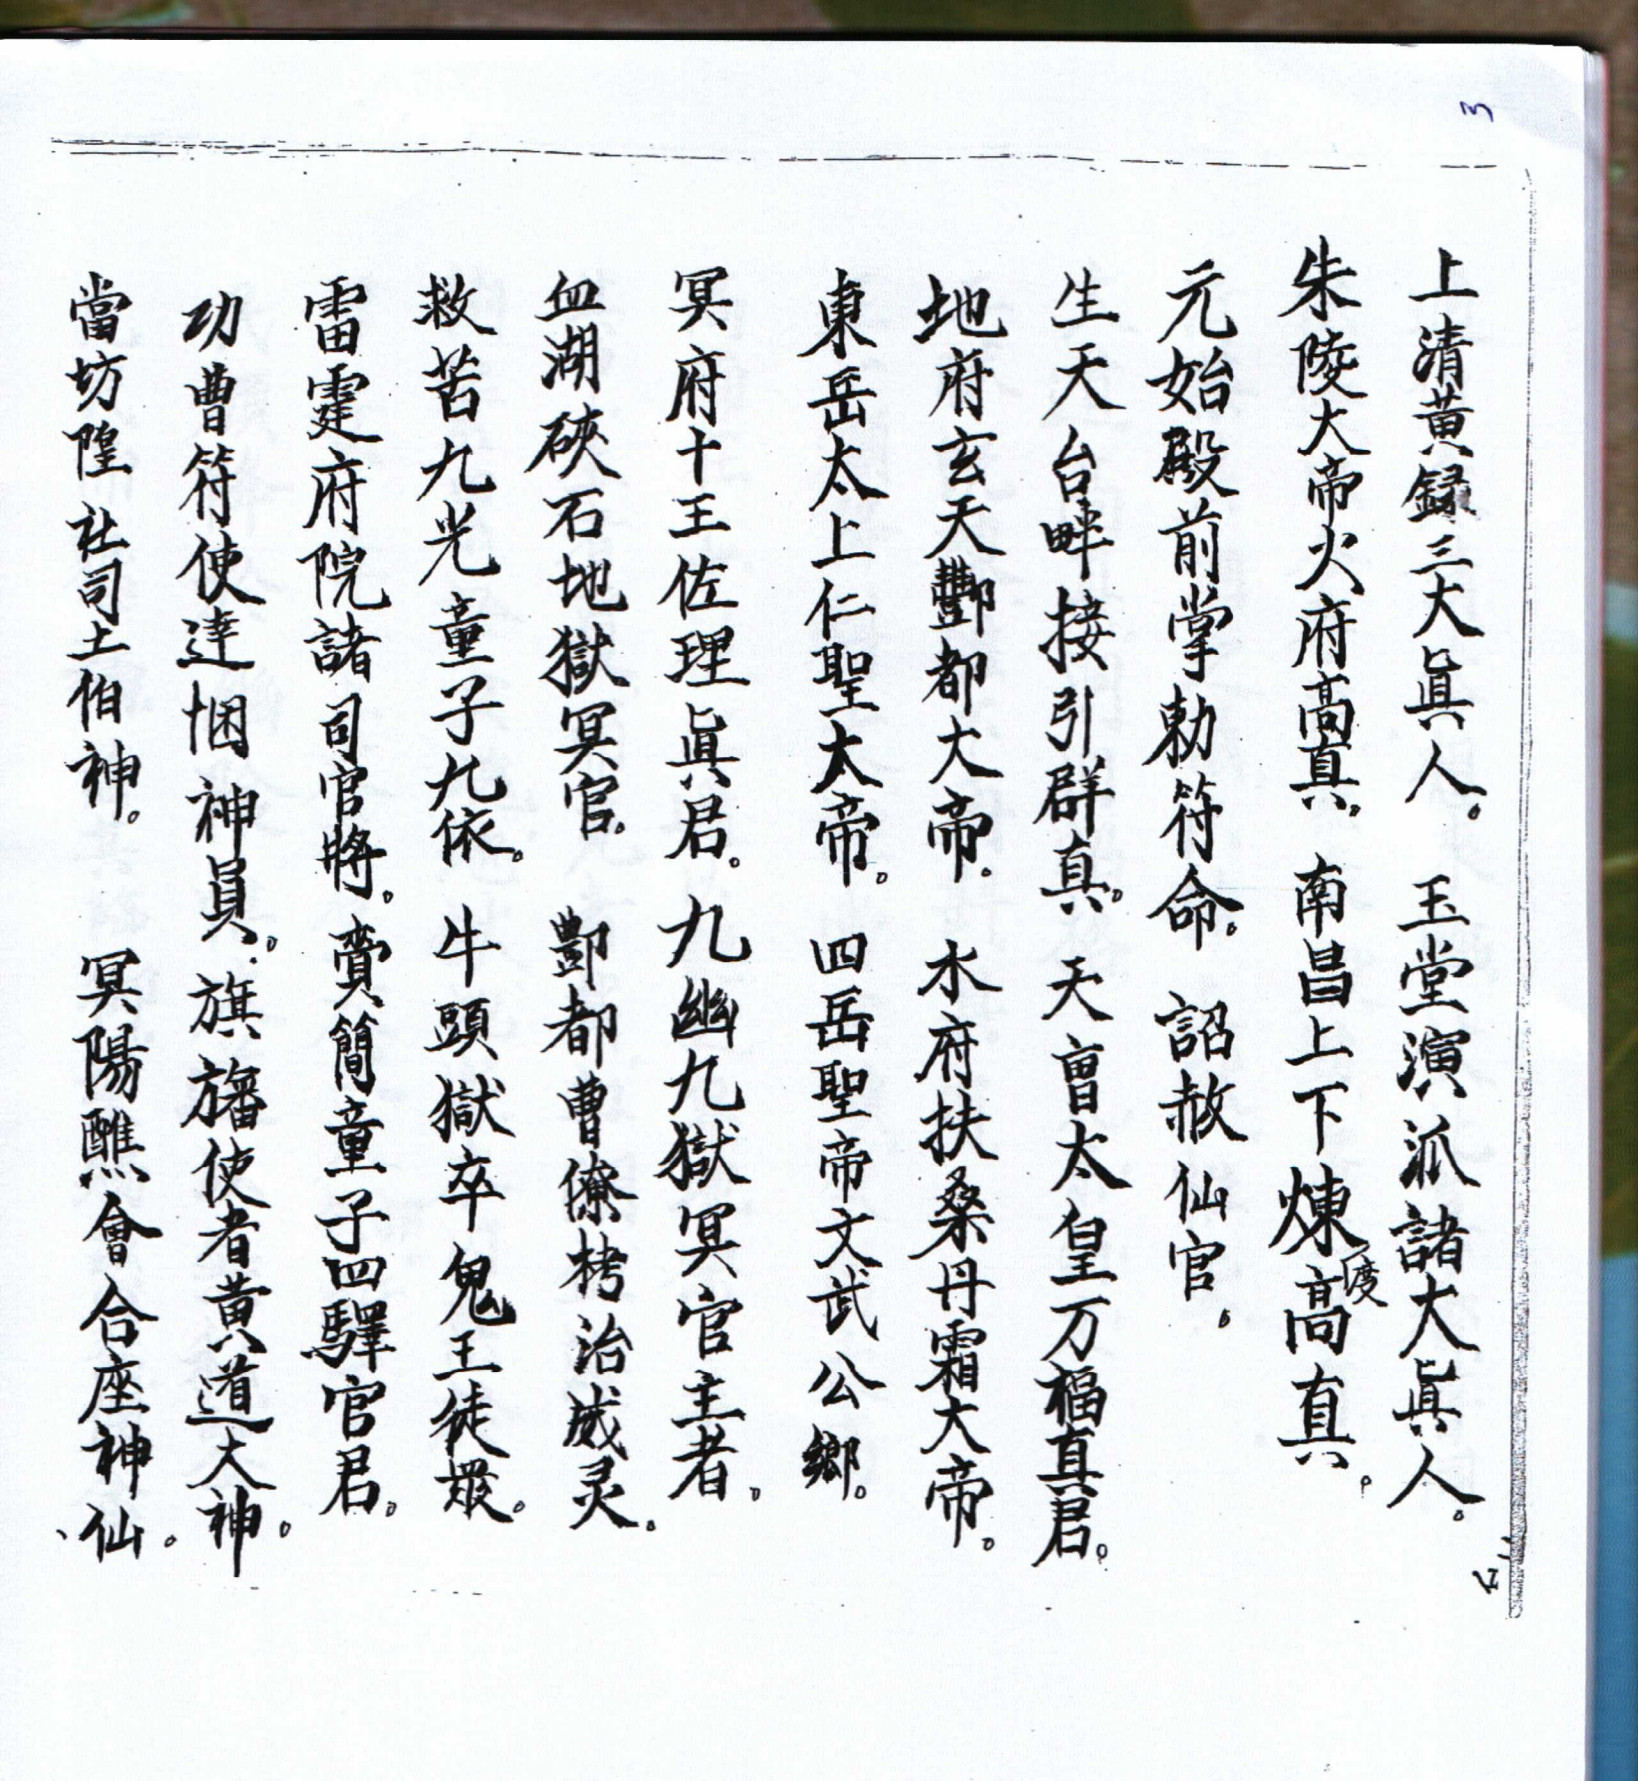 3
上清黃録三大眞人。 玉堂演派諸大眞人。
朱陵大帝火府高真。 南昌上下煉度高真。
元始殿前掌勅符命。 詔赦仙官。
生天台畔接引群真。 天曺太皇万福真君。
地府玄天酆都大帝。 水府扶桑丹霜大帝。
東岳太上仁聖太帝。 四岳聖帝文武公鄉。
冥府十王佐理眞君。 九幽九獄冥官主者。
血湖硤石地獄冥官。 酆都曹僚栲治威灵。
救苦九光童子九依。 牛頭獄卒鬼王徒眾。
雷霆府院諸司官將。 賫簡童子四驛官君。
功曹符使達悃神員。 旗旛使者黄道大神。
當坊隍社司土伯神。 冥陽醮會合座神仙。